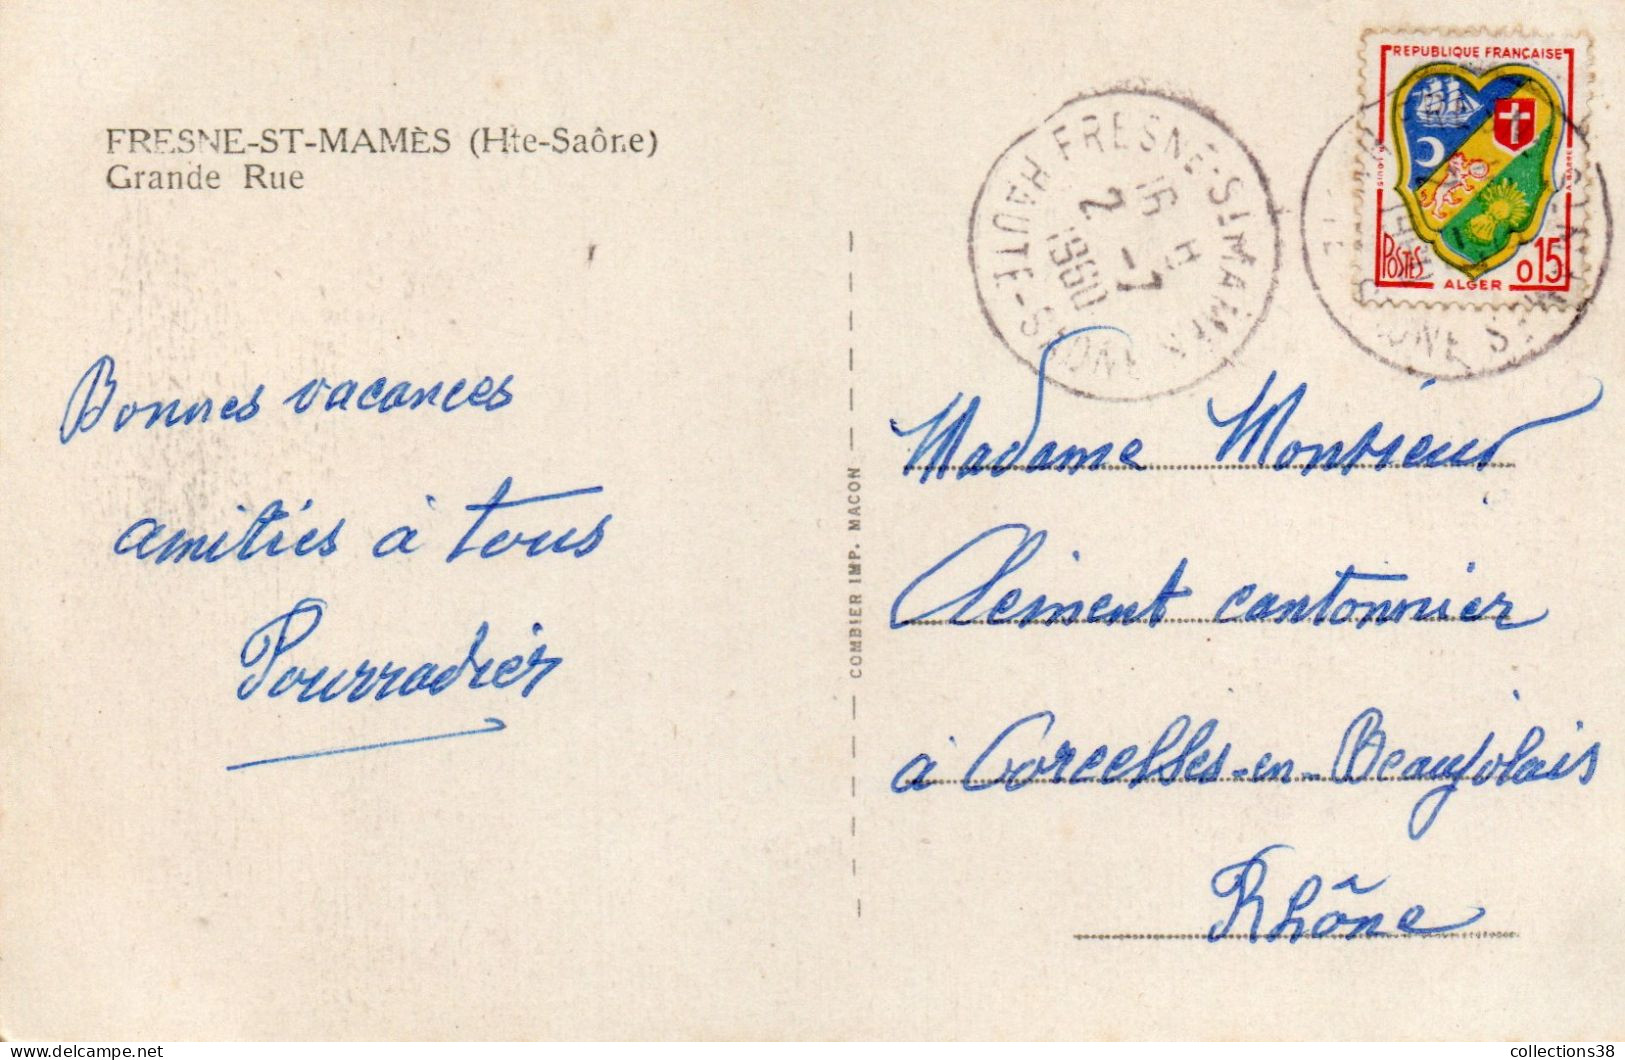 FRESNE-ST-MAMÈS (Hte-Saône)
Grande Rue
Bonnes vacances
amitiés à tous
Pourradier
COMBIER IMP. MACON
FRESNE-ST MAMÈS
HAUTE-SAÔNE
16 H
2 - 7
1960
REPUBLIQUE FRANÇAISE
POSTES
0,15
ALGER
Madame Monsieur
Clément cantonnier
à Corcelles-en-Beaujolais
Rhône
collections38